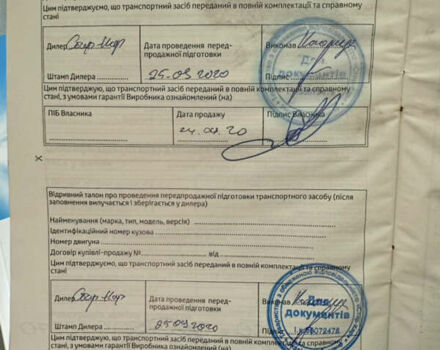 Цим підтверджуємо, що транспортний засіб переданий в повній комплектації та справному
стані
Дилер
Дата проведення перед-
продажної підготовки
Виконав
Штамп Дилера
25.09.2020
Підпис
Для
документів
Цим підтверджую, що транспортний засіб переданий в повній комплектації та справному
стані, з умовами гарантії Виробника ознайомлений (на)
ПІБ Власника
Дата продажу
Підпис Власника
х
Відривний талон про проведення передпродажної підготовки транспортного засобу (після
заповнення вилучається і зберігається у дилера)
Найменування (марка, тип, модель, версія)
Ідентифікаційний номер кузова
Номер двигуна
Договір купівлі-продажу № від
Цим підтверджуємо, що транспортний засіб переданий в повній комплектації та справному
стані
Дилер
Дата проведення перед-
продажної підготовки
Виконав
Для
документів
Штамп Дилера
25.09.2020
Цим підтверджую, що транспортний засіб переданий в повній комплектації та справному
стані, з умовами гарантії Виробника ознайомлений (на)